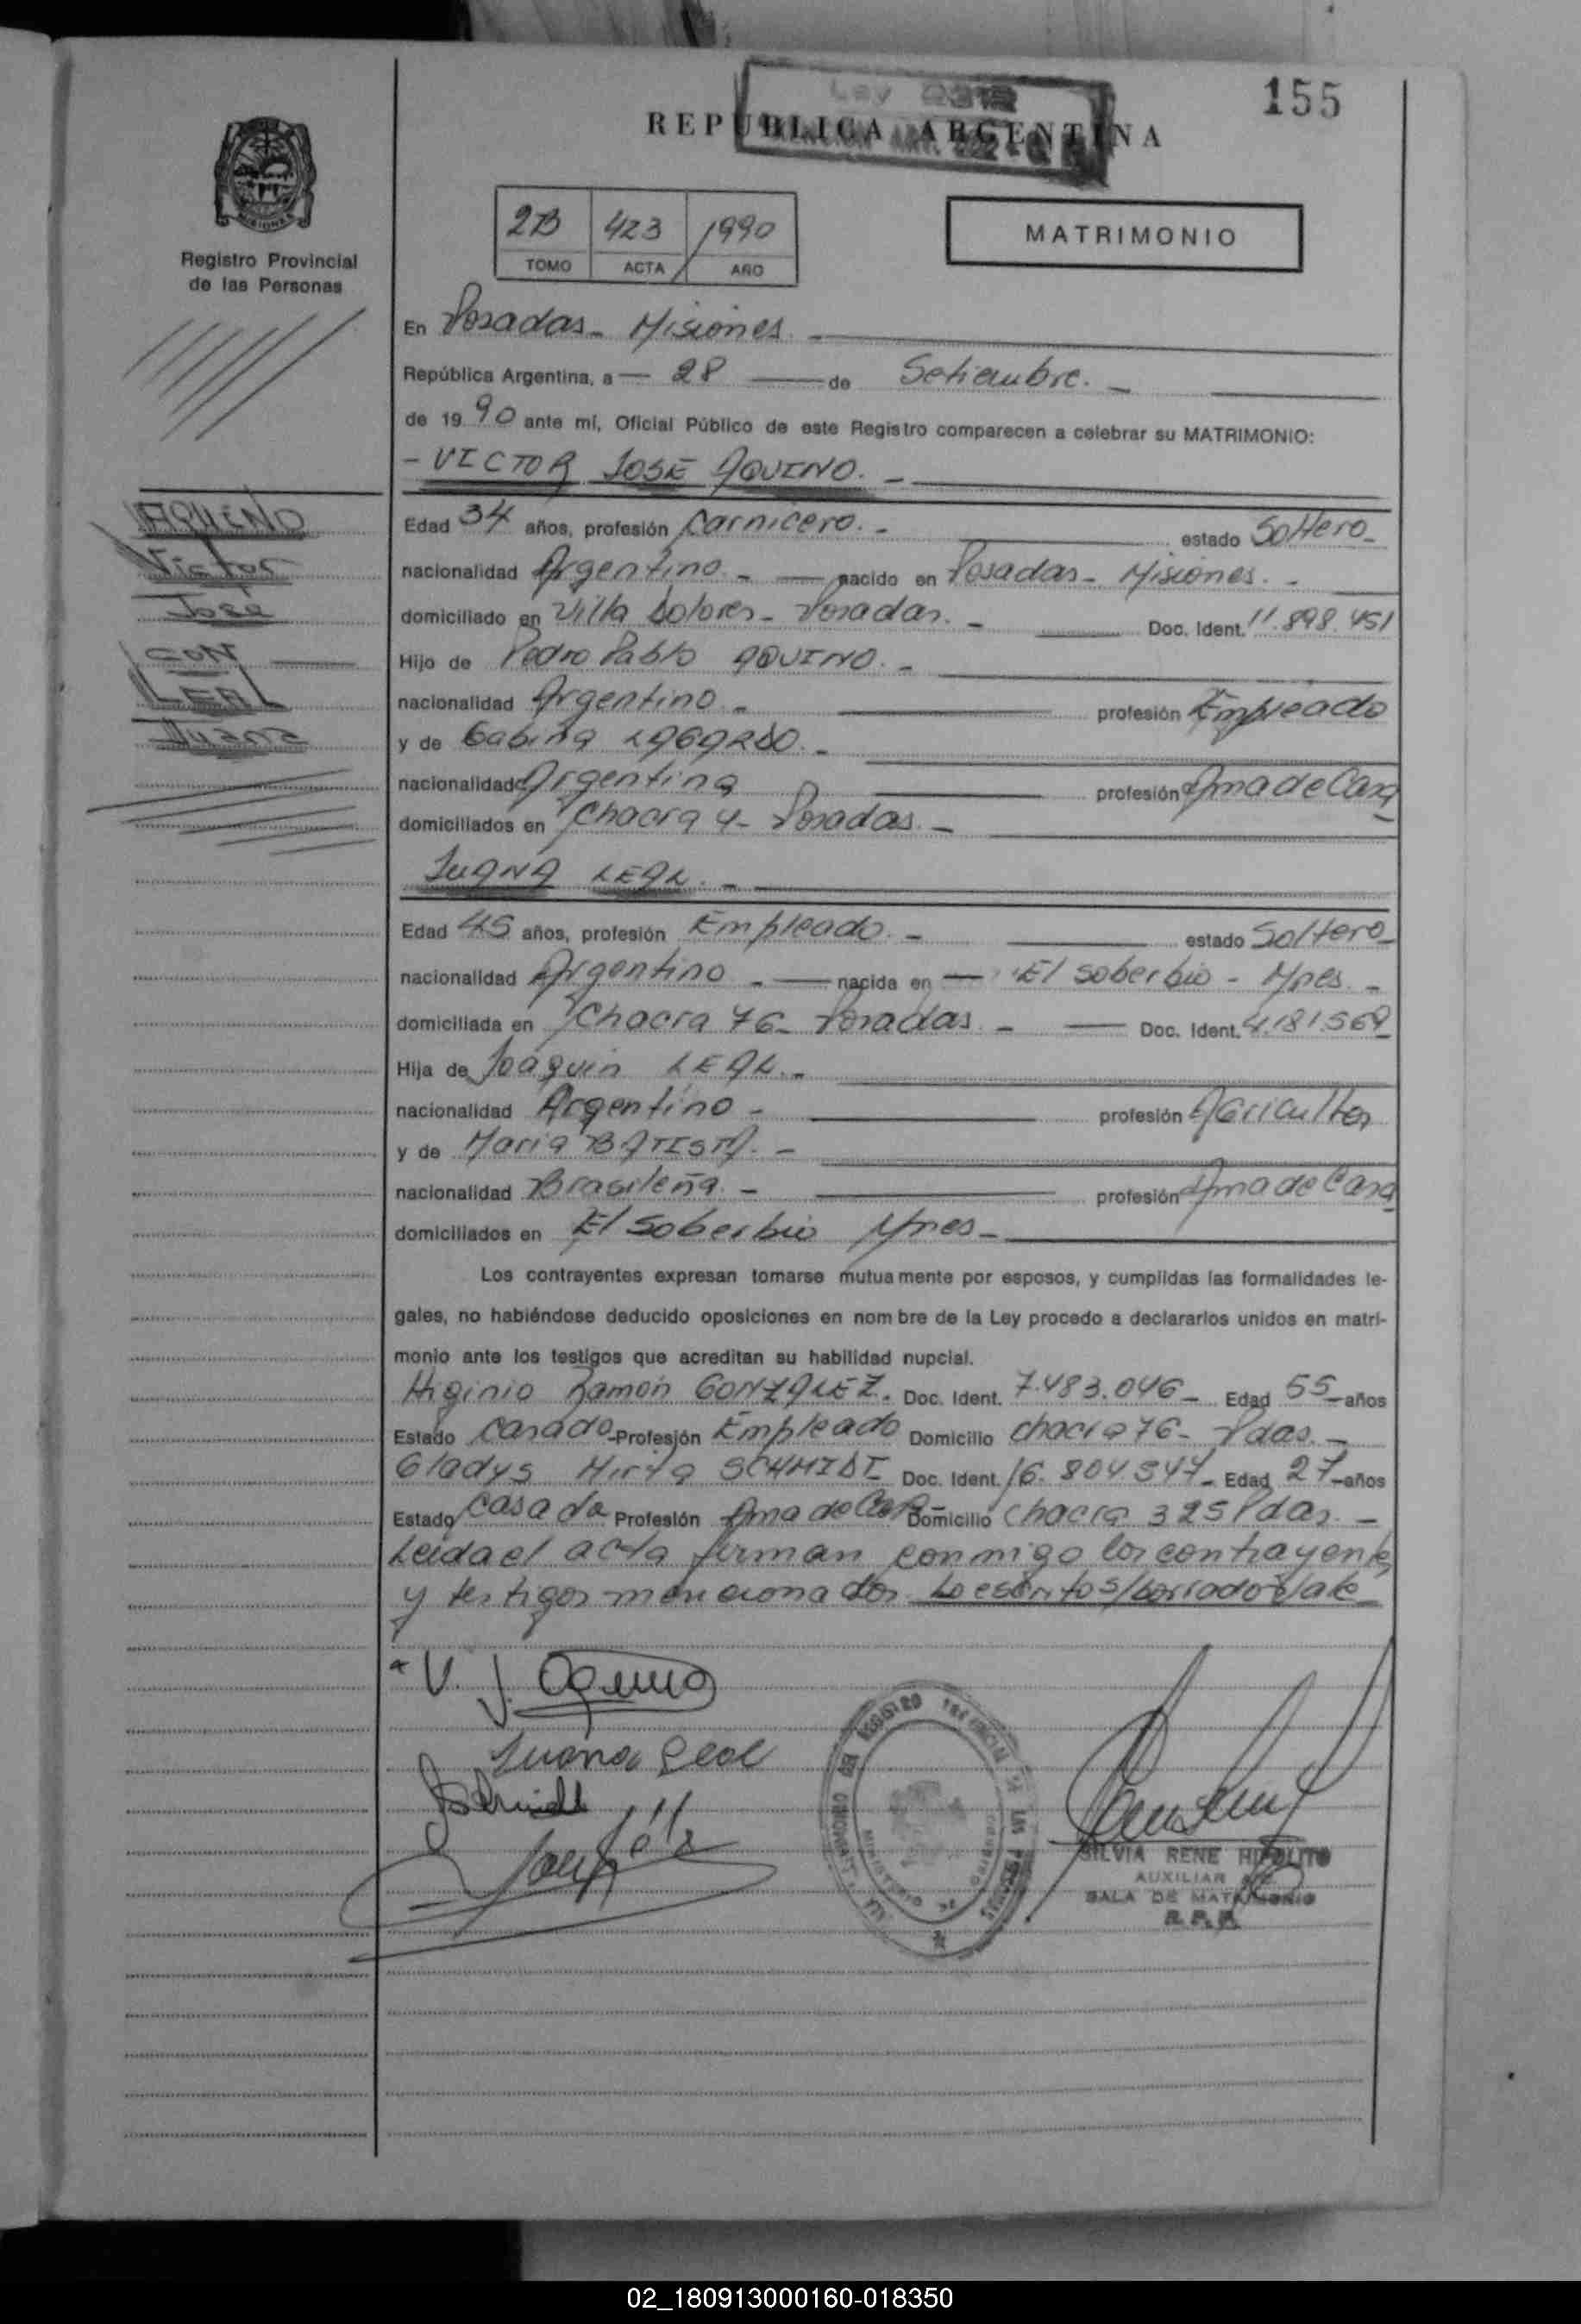 155
REPUBLICA ARGENTINA
Registro Provincial
de las Personas
2B 423 1990
TOMO ACTA AÑO
MATRIMONIO
En Posadas - Misiones. -
República Argentina, a — 28 — de Setiembre. -
de 19 90 ante mí, Oficial Público de este Registro comparecen a celebrar su MATRIMONIO:
- VICTOR JOSE AQUINO. -
AQUINO
Victor
José
CON
LEAL
Juana
Edad 34 años, profesión Carnicero. - estado Soltero -
nacionalidad Argentino - — nacido en Posadas - Misiones. -
domiciliado en Villa Dolores - Posadas. - Doc. Ident. 11.898.451
Hijo de Pedro Pablo AQUINO. -
nacionalidad Argentino - profesión Empleado
y de Gabina LAGARDO. -
nacionalidad Argentina profesión Ama de Casa
domiciliados en Chacra 4 - Posadas. -
JUANA LEAL. -
Edad 45 años, profesión Empleado. - estado Soltero -
nacionalidad Argentino - — nacida en — El Soberbio - Mnes. -
domiciliada en Chacra 76 - Posadas. - — Doc. Ident. 4.181.569
Hija de Joaquin LEAL. -
nacionalidad Argentino - profesión Agricultor
y de Maria BATISTA. -
nacionalidad Brasileña. - profesión Ama de Casa
domiciliados en El Soberbio Mnes -
Los contrayentes expresan tomarse mutuamente por esposos, y cumplidas las formalidades le-
gales, no habiéndose deducido oposiciones en nombre de la Ley procedo a declararlos unidos en matri-
monio ante los testigos que acreditan su habilidad nupcial.
Higinio Ramón GONZALEZ. Doc. Ident. 7.483.046 - Edad 55 años
Estado Casado - Profesión Empleado Domicilio chacra 76 - Pdas. -
Gladys Mirta SCHMIDT Doc. Ident. 16.804.547 - Edad 27 años
Estado Casada Profesión Ama de Casa Domicilio Chacra 325 Pdas. -
Leida el acta firman conmigo los contrayentes
y testigos mencionados. Lo escrito s/borrado Vale -
V. J. Aquino
Juana Leal
SILVIA RENE HIPOLITO
AUXILIAR
SALA DE MATRIMONIO
R. P. P.
02_180913000160-018350